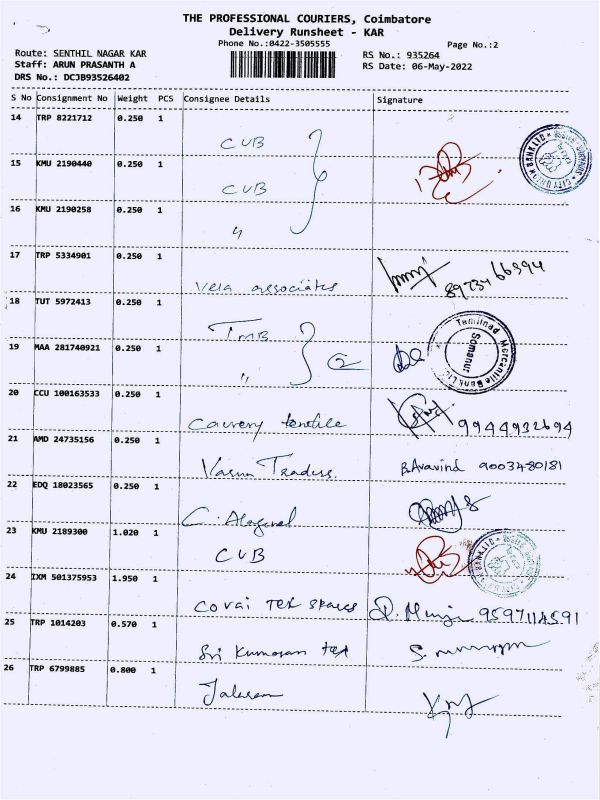 THE PROFESSIONAL COURIERS, Coimbatore
Delivery Runsheet - KAR
Phone No.:0422-3505555
Page No.:2
Route: SENTHIL NAGAR KAR
Staff: ARUN PRASANTH A
DRS No.: DCJB93526402
RS No.: 935264
RS Date: 06-May-2022
S No Consignment No Weight PCS Consignee Details Signature
14 TRP 8221712 0.250 1
CUB
15 KMU 2190440 0.250 1
CUB
CITY UNION BANK LTD
16 KMU 2190258 0.250 1
"
17 TRP 5334901 0.250 1
Vela associates 8973766394
18 TUT 5972413 0.250 1
TMB
19 MAA 281740921 0.250 1
" 2
Tamilnad Mercantile Bank Ltd.
Somanur
20 CCU 100163533 0.250 1
Cauvery textile 9944932694
21 AMD 24735156 0.250 1
Varun Traders. B.Aravind 9003480181
22 EDQ 18023565 0.250 1
23 KMU 2189300 1.020 1
CUB
24 IXM 501375953 1.950 1
Covai Tex spares 9597114591
25 TRP 1014203 0.570 1
Sri Kumaran tex
26 TRP 6799885 0.800 1